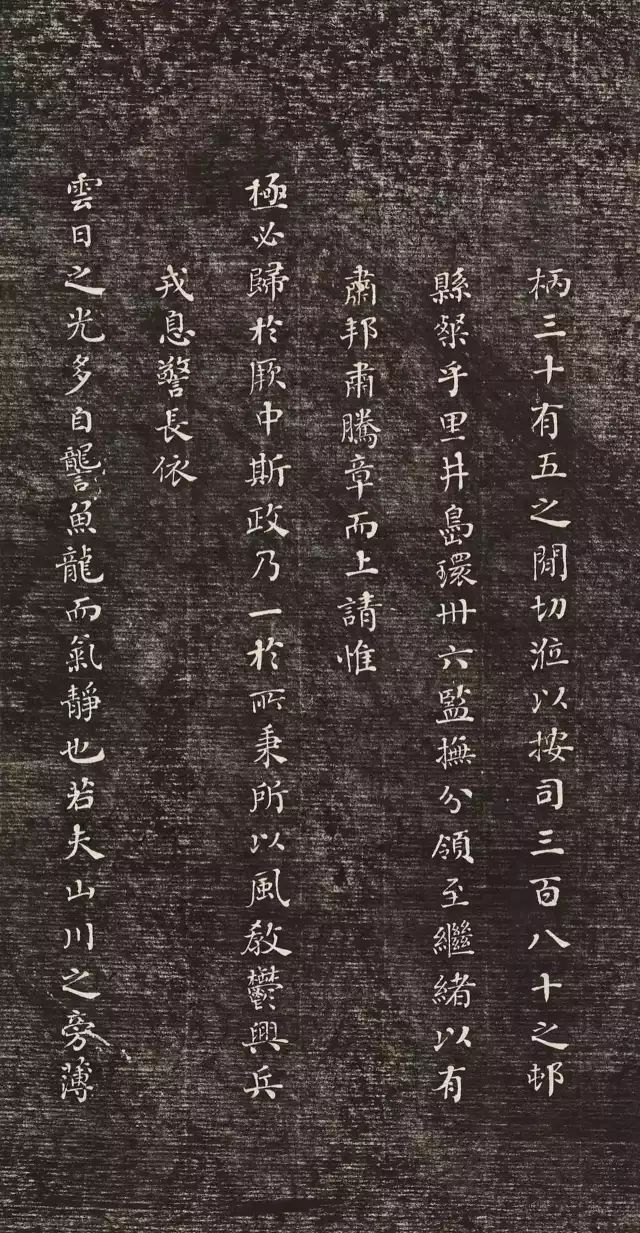 柄三十有五之間切涖以按司三百八十之邨
縣槩乎里井島環卅六監撫分領至繼緒以有
肅邦肅騰章而上請惟
極必歸於厥中斯政乃一於所秉所以風教鬱興兵
戎息警長依
雲日之光多自讋魚龍而氣靜也若夫山川之旁薄